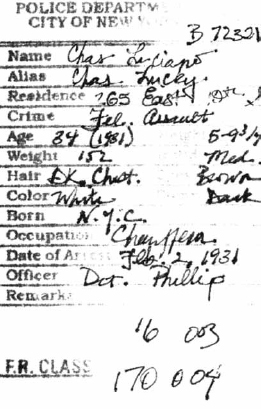 POLICE DEPARTM
CITY OF NEW
B 72321
Name Chas Luciano
Alias Chas. Lucky.
Residence 265 East
Crime Fel. Assault
Age 34 (1931) 5-9¾
Weight 152 Med.
Hair DK. Chest. Brown
Color White Dark
Born N.Y.C.
Occupation Chauffeur
Date of Arrest Feb. 2, 1931
Officer Det. Phillip
Remarks
16 003
F.R. CLASS 170 004